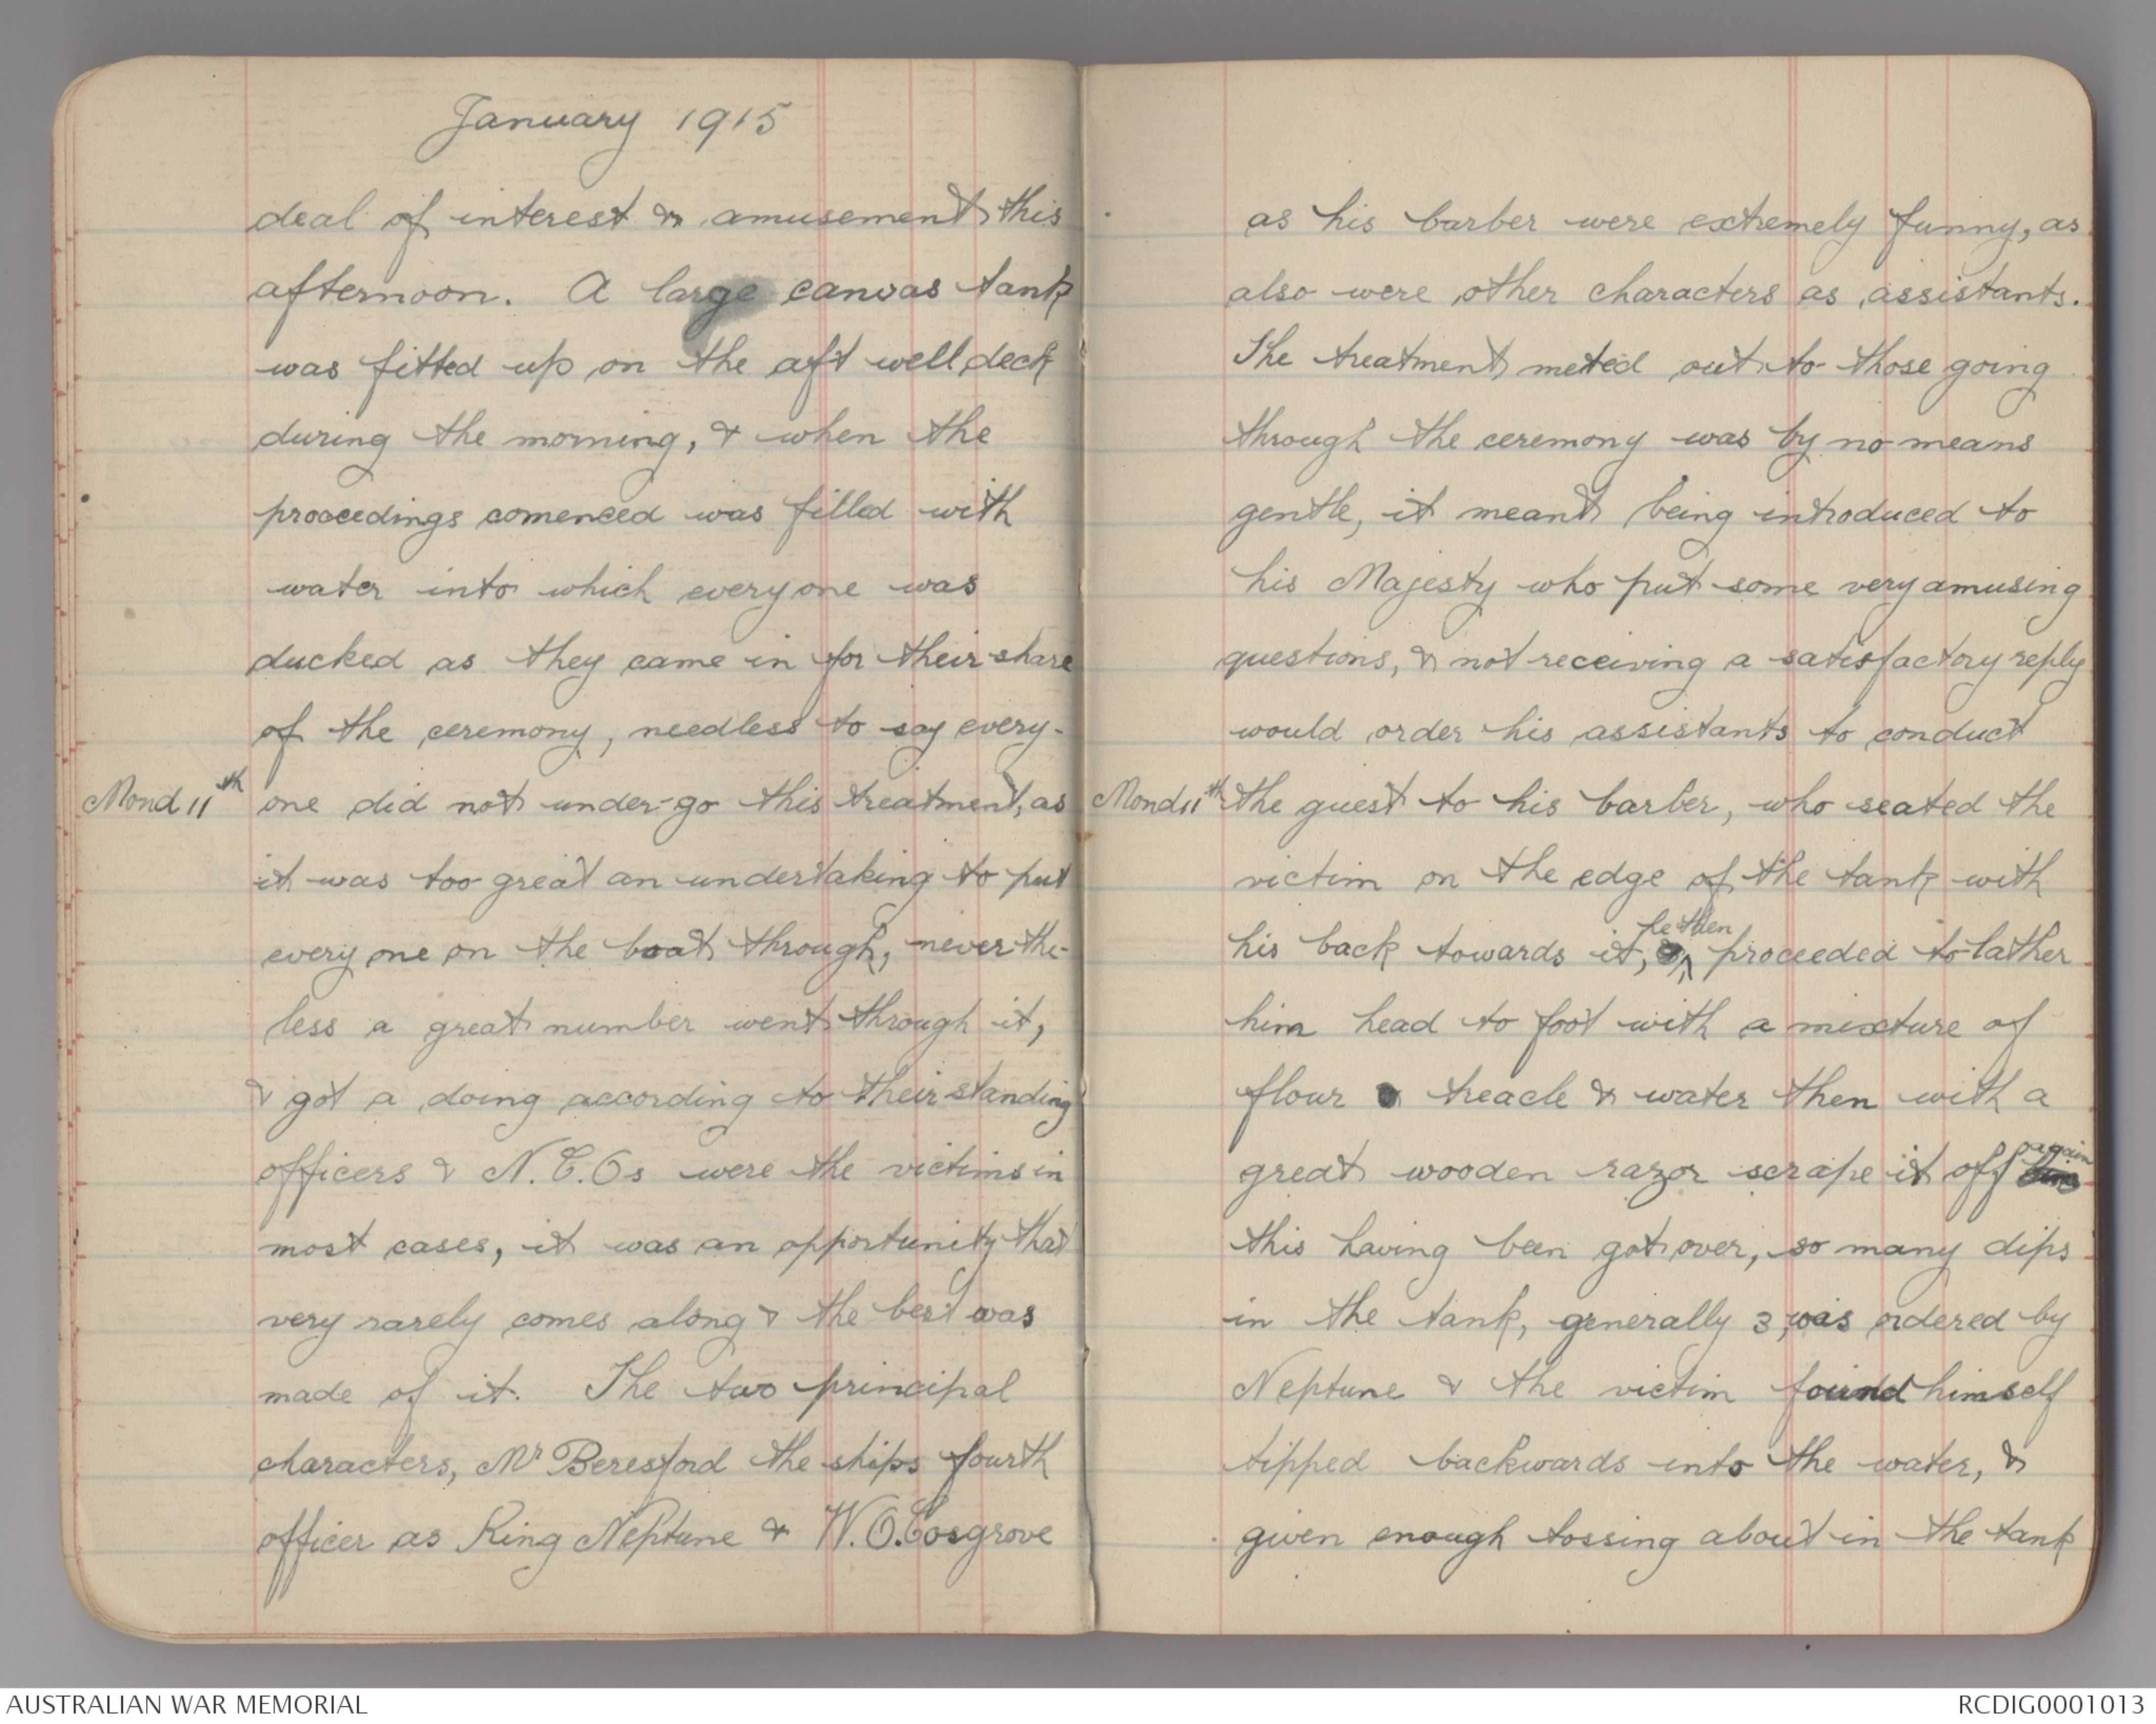 January 1915
deal of interest & amusement this
afternoon. A large canvas tank
was fitted up on the aft well deck
during the morning, & when the
proceedings comenced was filled with
water into which everyone was
ducked as they came in for their share
of the ceremony, needless to say every-
Mond 11th one did not under-go this treatment, as
it was too great an undertaking to put
every one on the boat through, never the-
less a great number went through it,
& got a doing according to their standing
officers & N.C.Os were the victims in
most cases, it was an opportunity that
very rarely comes along & the best was
made of it. The two principal
characters, Mr Beresford the ships fourth
officer as King Neptune & W.O. Cosgrove
as his barber were extremely funny, as
also were other characters as assistants.
The treatment meted out to those going
through the ceremony was by no means
gentle, it meant being introduced to
his Majesty who put some very amusing
questions, & not receiving a satisfactory reply
would order his assistants to conduct
Mond 11th the guest to his barber, who seated the
victim on the edge of the tank with
his back towards it, he then proceeded to lather
him head to foot with a mixture of
flour treacle & water then with a
great wooden razor scrape it off again
this having been got over, so many dips
in the tank, generally 3, was ordered by
Neptune & the victim found himself
tipped backwards into the water, &
given enough tossing about in the tank
AUSTRALIAN WAR MEMORIAL
RCDIG0001013